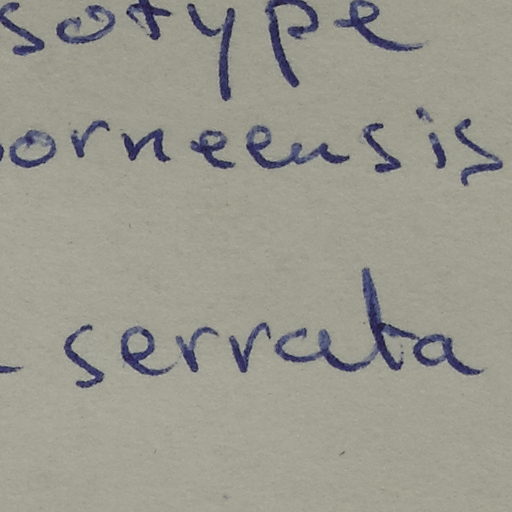 sotype
orneensis
- serrata